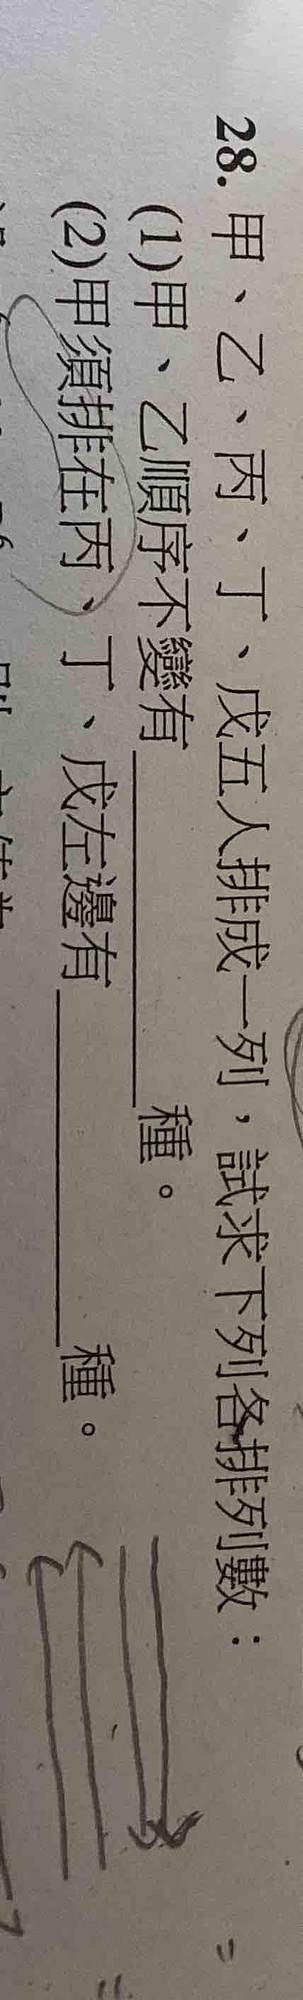 28. 甲、乙、丙、丁、戊五人排成一列,試求下列各排列數:
(1)甲、乙順序不變有________種。
(2)甲須排在丙、丁、戊左邊有________種。